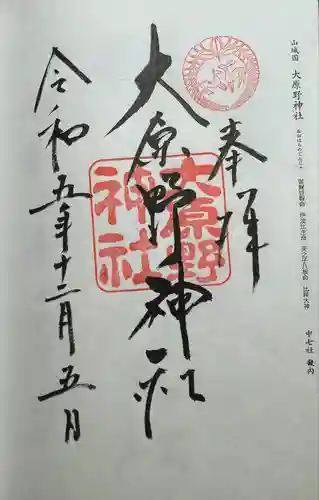 山城国 大原野神社
中七社 餘内
奉拝
大原野神社
大原野
神社
令和五年十二月五日